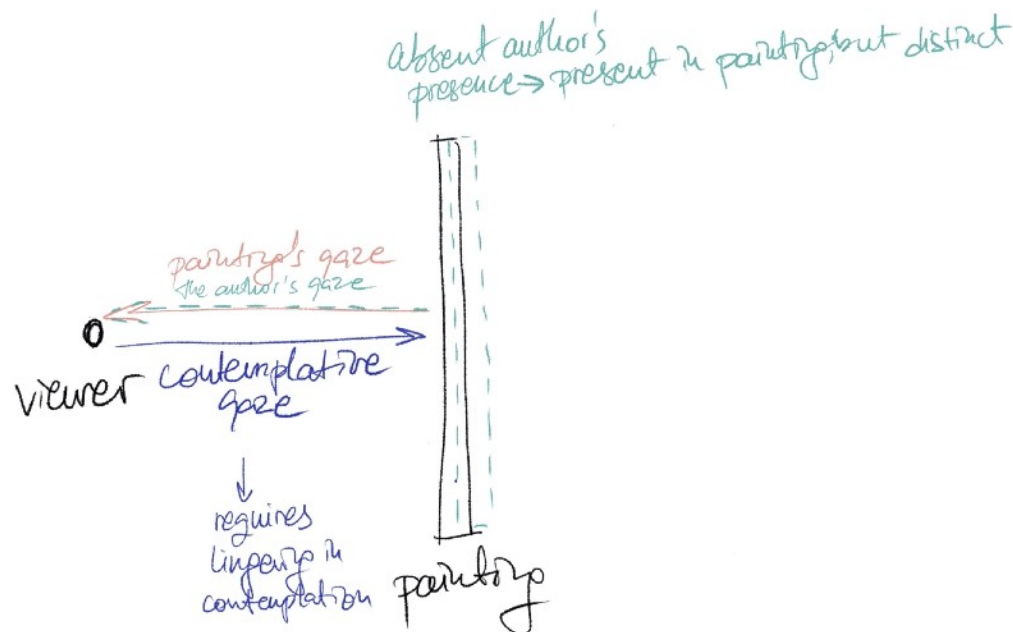 absent author's
presence → present in painting, but distinct
painting's gaze
the author's gaze
viewer
contemplative
gaze
requires
lingering in
contemplation
painting